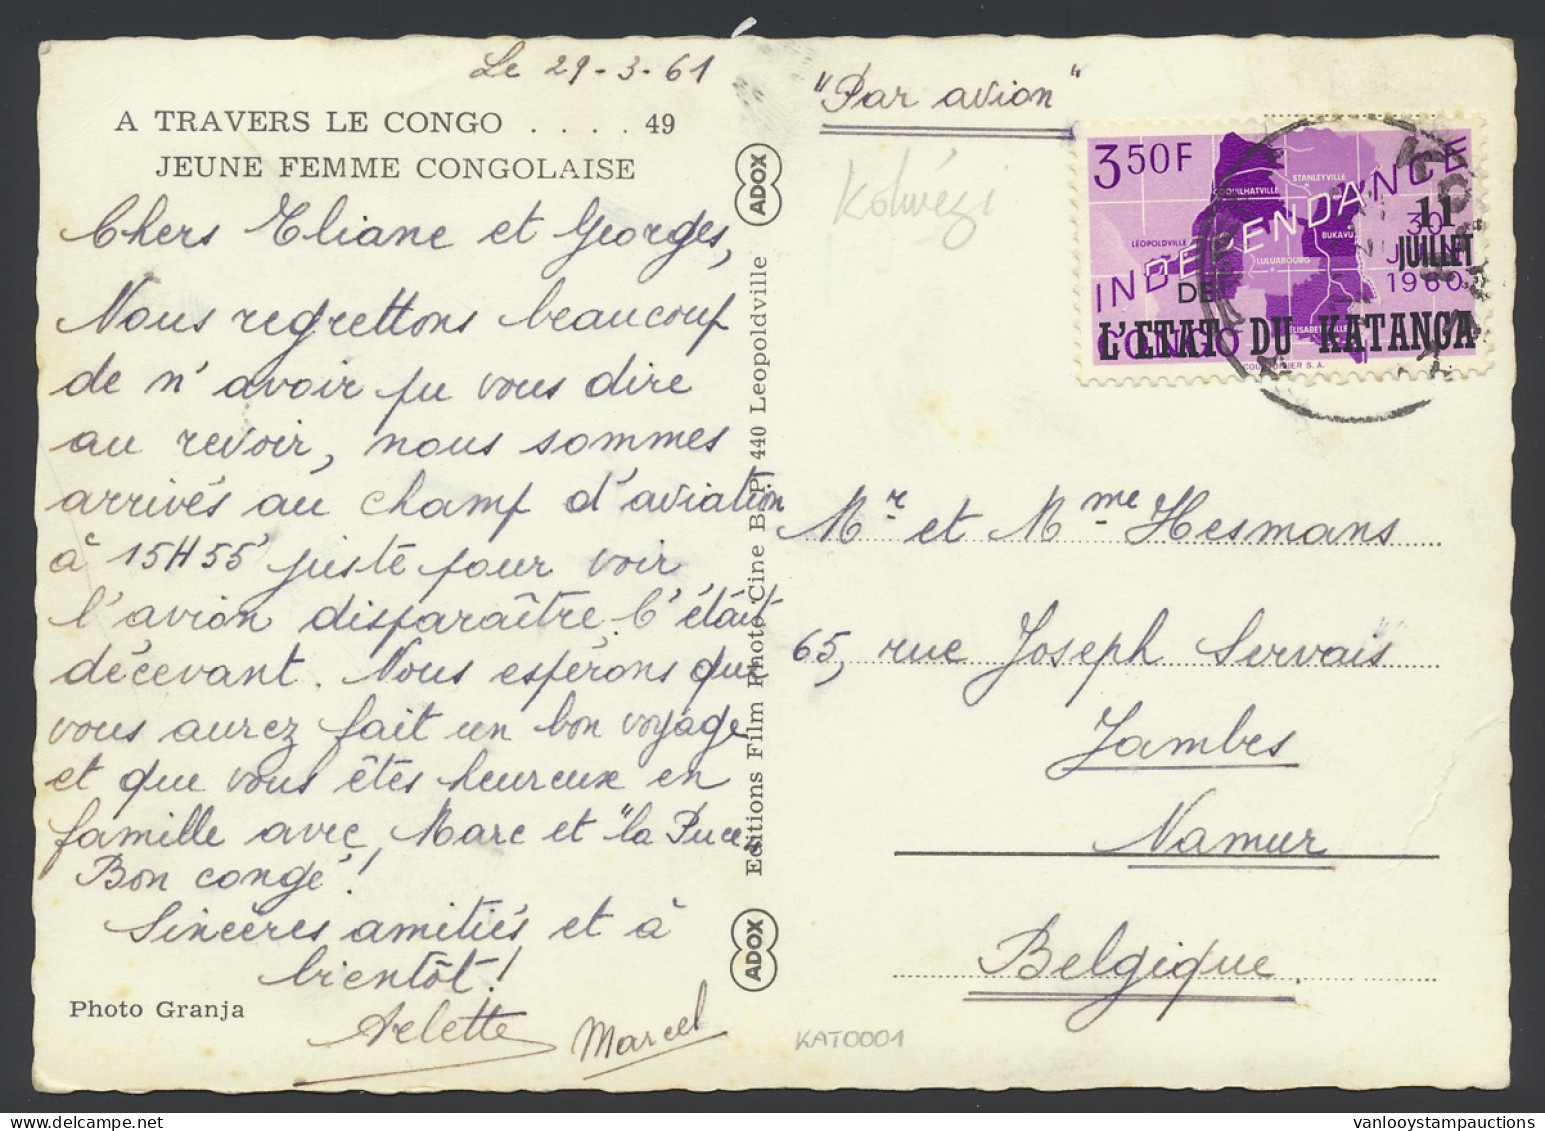 Le 29-3-61
A TRAVERS LE CONGO . . . . 49
JEUNE FEMME CONGOLAISE
Chers Eliane et Georges,
Nous regrettons beaucoup
de n'avoir pu vous dire
au revoir, nous sommes
arrivés au champ d'aviation
à 15H55 juste pour voir
l'avion disparaître. C'était
décevant. Nous espérons que
vous aurez fait un bon voyage
et que vous êtes heureux en
famille avec Marc et "la Puce"
Bon congé!
Sincères amitiés et à
bientôt!
Arlette Marcel
Photo Granja
ADOX
Editions Film Photo Cine B. P. 440 Leopoldville
ADOX
"Par avion"
Kolwézi
3,50F
INDEPENDANCE
COQUILHATVILLE
STANLEYVILLE
LÉOPOLDVILLE
BUKAVU
LULUABOURG
ELISABETHVILLE
11
JUILLET
30
1960
DE
L'ETAT DU KATANGA
CONGO
COURVOISIER S.A.
Mr et Mme Hesmans
65, rue Joseph Servais
Jambes
Namur
Belgique
KAT0001
vanlooystampauctions